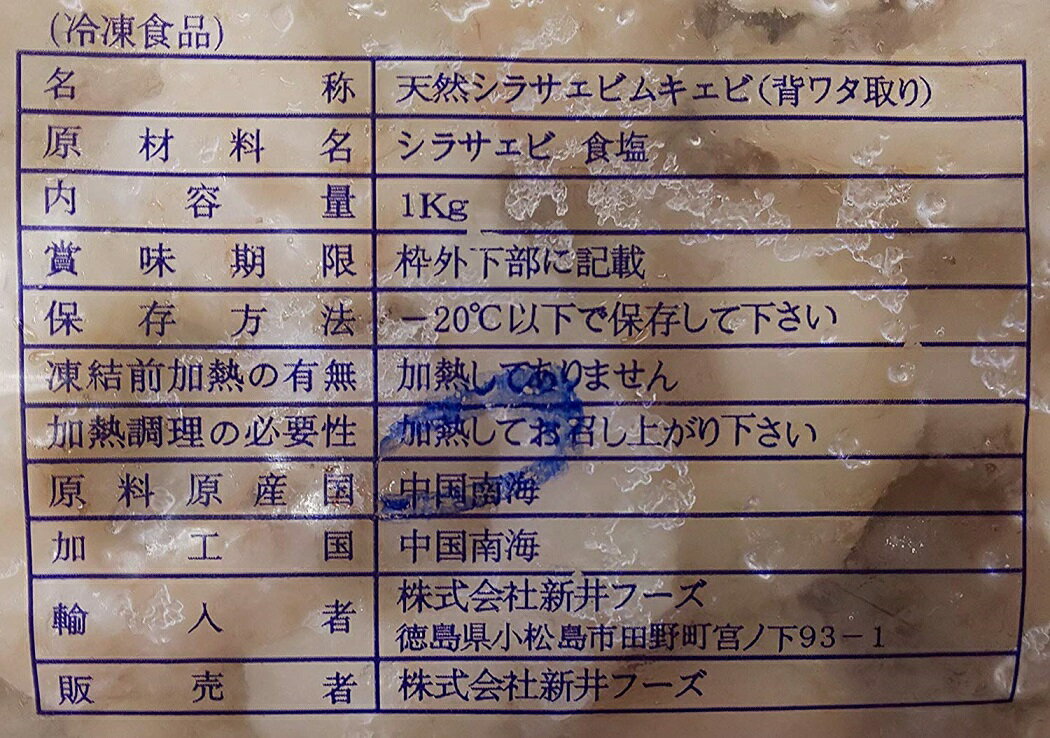 (冷凍食品)
名称 天然シラサエビムキエビ(背ワタ取り)
原材料名 シラサエビ 食塩
内容量 1Kg
賞味期限 枠外下部に記載
保存方法 －20℃以下で保存して下さい
凍結前加熱の有無 加熱してありません
加熱調理の必要性 加熱してお召し上がり下さい
原料原産国 中国南海
加工国 中国南海
輸入者 株式会社新井フーズ
徳島県小松島市田野町宮ノ下93－1
販売者 株式会社新井フーズ